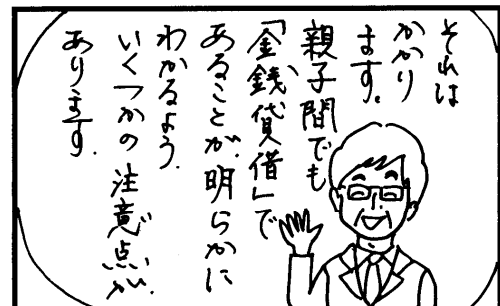 それは
かかり
ます。
親子間でも
「金銭貸借」で
あることが、明らかに
わかるよう、
いくつかの注意点が、
あります。